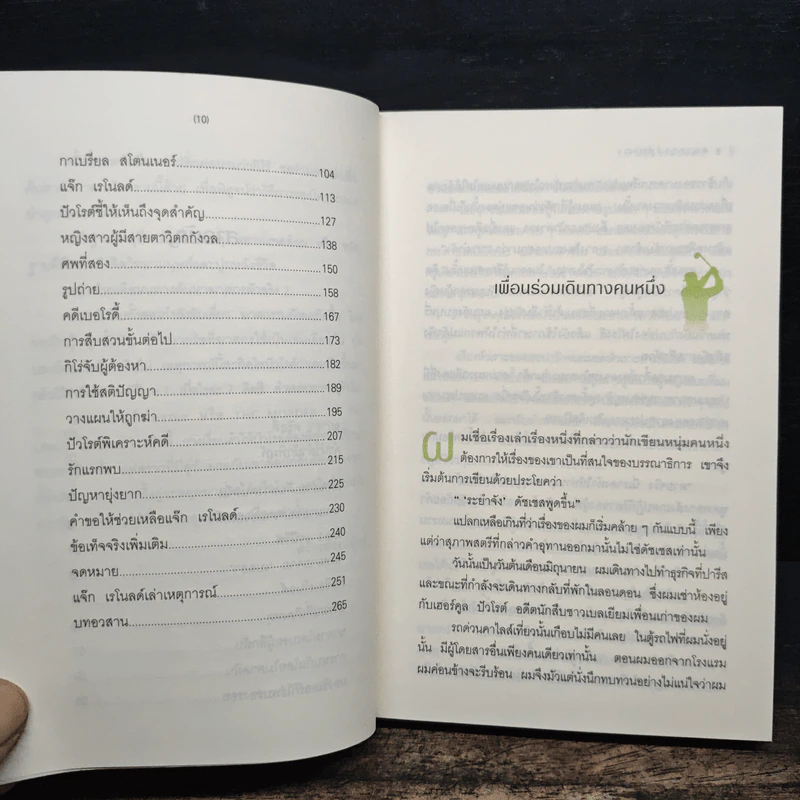 (10)
กาเบรียล สโตนเนอร์ 104
แจ๊ก เรโนลด์ 113
ปัวโรต์ชี้ให้เห็นถึงจุดสำคัญ 127
หญิงสาวผู้มีสายตาวิตกกังวล 138
ศพที่สอง 150
รูปถ่าย 158
คดีเบอโรดี้ 167
การสืบสวนขั้นต่อไป 173
กิโร่จับผู้ต้องหา 182
การใช้สติปัญญา 189
วางแผนให้ถูกฆ่า 195
ปัวโรต์พิเคราะห์คดี 207
รักแรกพบ 215
ปัญหายุ่งยาก 225
คำขอให้ช่วยเหลือแจ๊ก เรโนลด์ 230
ข้อเท็จจริงเพิ่มเติม 240
จดหมาย 245
แจ๊ก เรโนลด์เล่าเหตุการณ์ 251
บทอวสาน 265
เพื่อนร่วมเดินทางคนหนึ่ง
ผมเชื่อเรื่องเล่าเรื่องหนึ่งที่กล่าวว่านักเขียนหนุ่มคนหนึ่ง
ต้องการให้เรื่องของเขาเป็นที่สนใจของบรรณาธิการ เขาจึง
เริ่มต้นการเขียนด้วยประโยคว่า
“ ‘ระยำจัง’ ดัชเชสพูดขึ้น”
แปลกเหลือเกินที่ว่าเรื่องของผมก็เริ่มคล้าย ๆ กันแบบนี้ เพียง
แต่ว่าสุภาพสตรีที่กล่าวคำอุทานออกมานั้นไม่ใช่ดัชเชสเท่านั้น
วันนั้นเป็นวันต้นเดือนมิถุนายน ผมเดินทางไปทำธุรกิจที่ปารีส
และขณะที่กำลังจะเดินทางกลับที่พักในลอนดอน ซึ่งผมเช่าห้องอยู่
กับเฮอร์คูล ปัวโรต์ อดีตนักสืบชาวเบลเยียมเพื่อนเก่าของผม
รถด่วนคาไลส์เที่ยวนั้นเกือบไม่มีคนเลย ในตู้รถไฟที่ผมนั่งอยู่
นั้น มีผู้โดยสารอื่นเพียงคนเดียวเท่านั้น ตอนผมออกจากโรงแรม
ผมค่อนข้างจะรีบร้อน ผมจึงมัวแต่นั่งนึกทบทวนอย่างไม่แน่ใจว่าผม